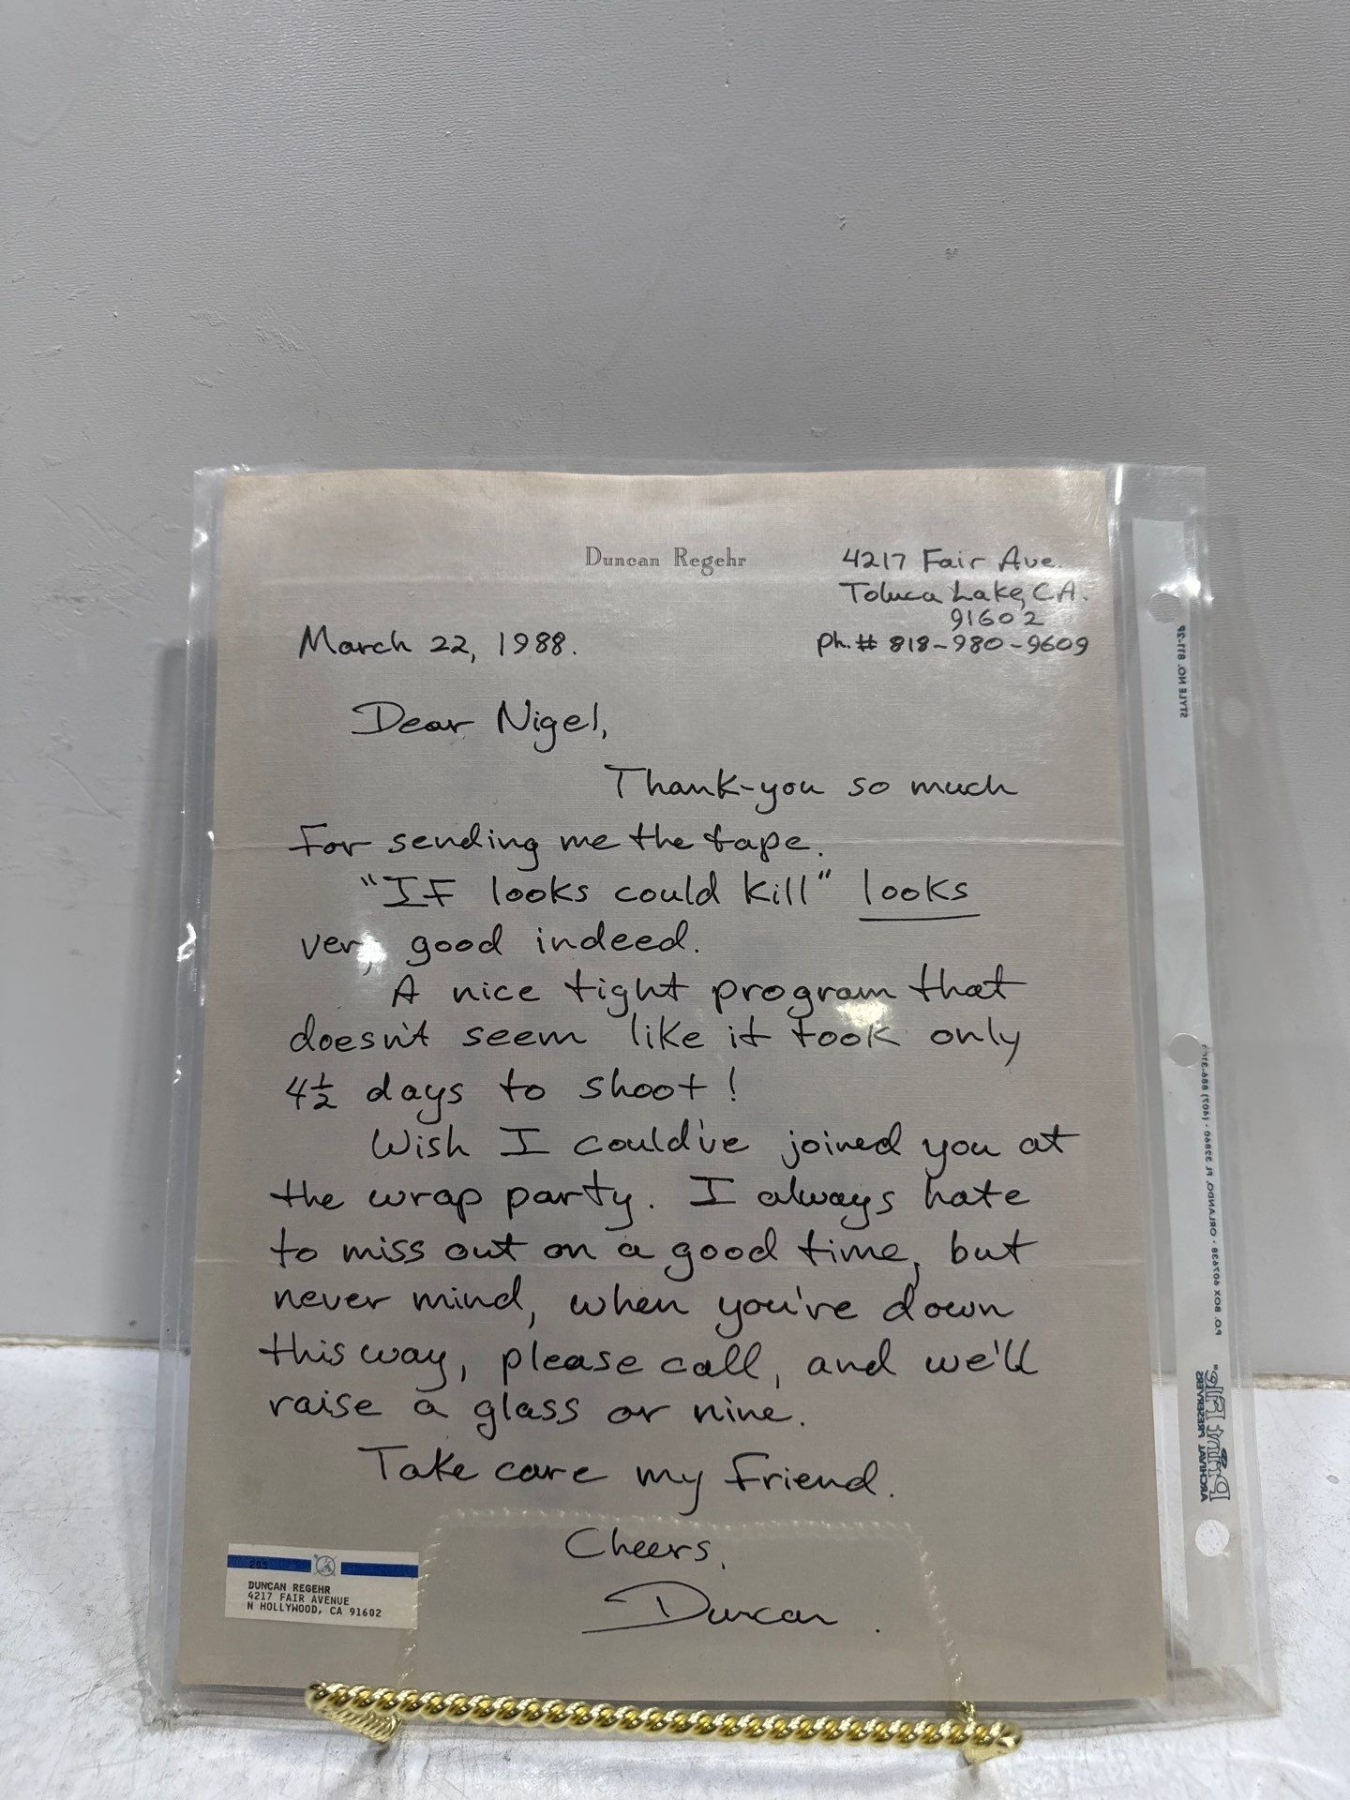 Duncan Regehr
4217 Fair Ave.
Toluca Lake, CA.
91602
Ph.# 818-980-9609
March 22, 1988.
Dear Nigel,
Thank-you so much
For sending me the tape.
"IF looks could kill" looks
very good indeed.
A nice tight program that
doesn't seem like it took only
4½ days to shoot!
Wish I could've joined you at
the wrap party. I always hate
to miss out on a good time, but
never mind, when you're down
this way, please call, and we'll
raise a glass or nine.
Take care my friend.
Cheers,
Duncan.
DUNCAN REGEHR
4217 FAIR AVENUE
N HOLLYWOOD, CA 91602
ARCHIVAL PRESERVERS
print file